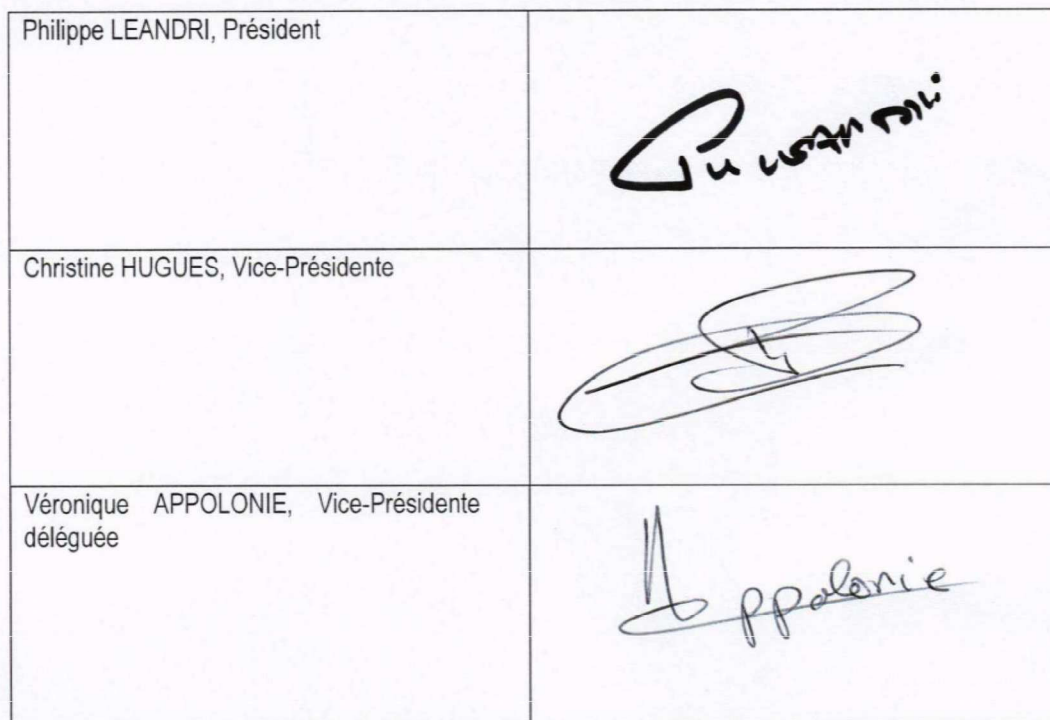 Philippe LEANDRI, Président
Christine HUGUES, Vice-Présidente
Véronique APPOLONIE, Vice-Présidente
déléguée
Appolonie